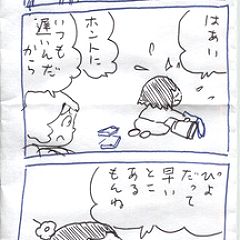 はぁい
ホントに
いつも
遅いんだ
から
ぴよ
だって
早い
とこ
あるもんね